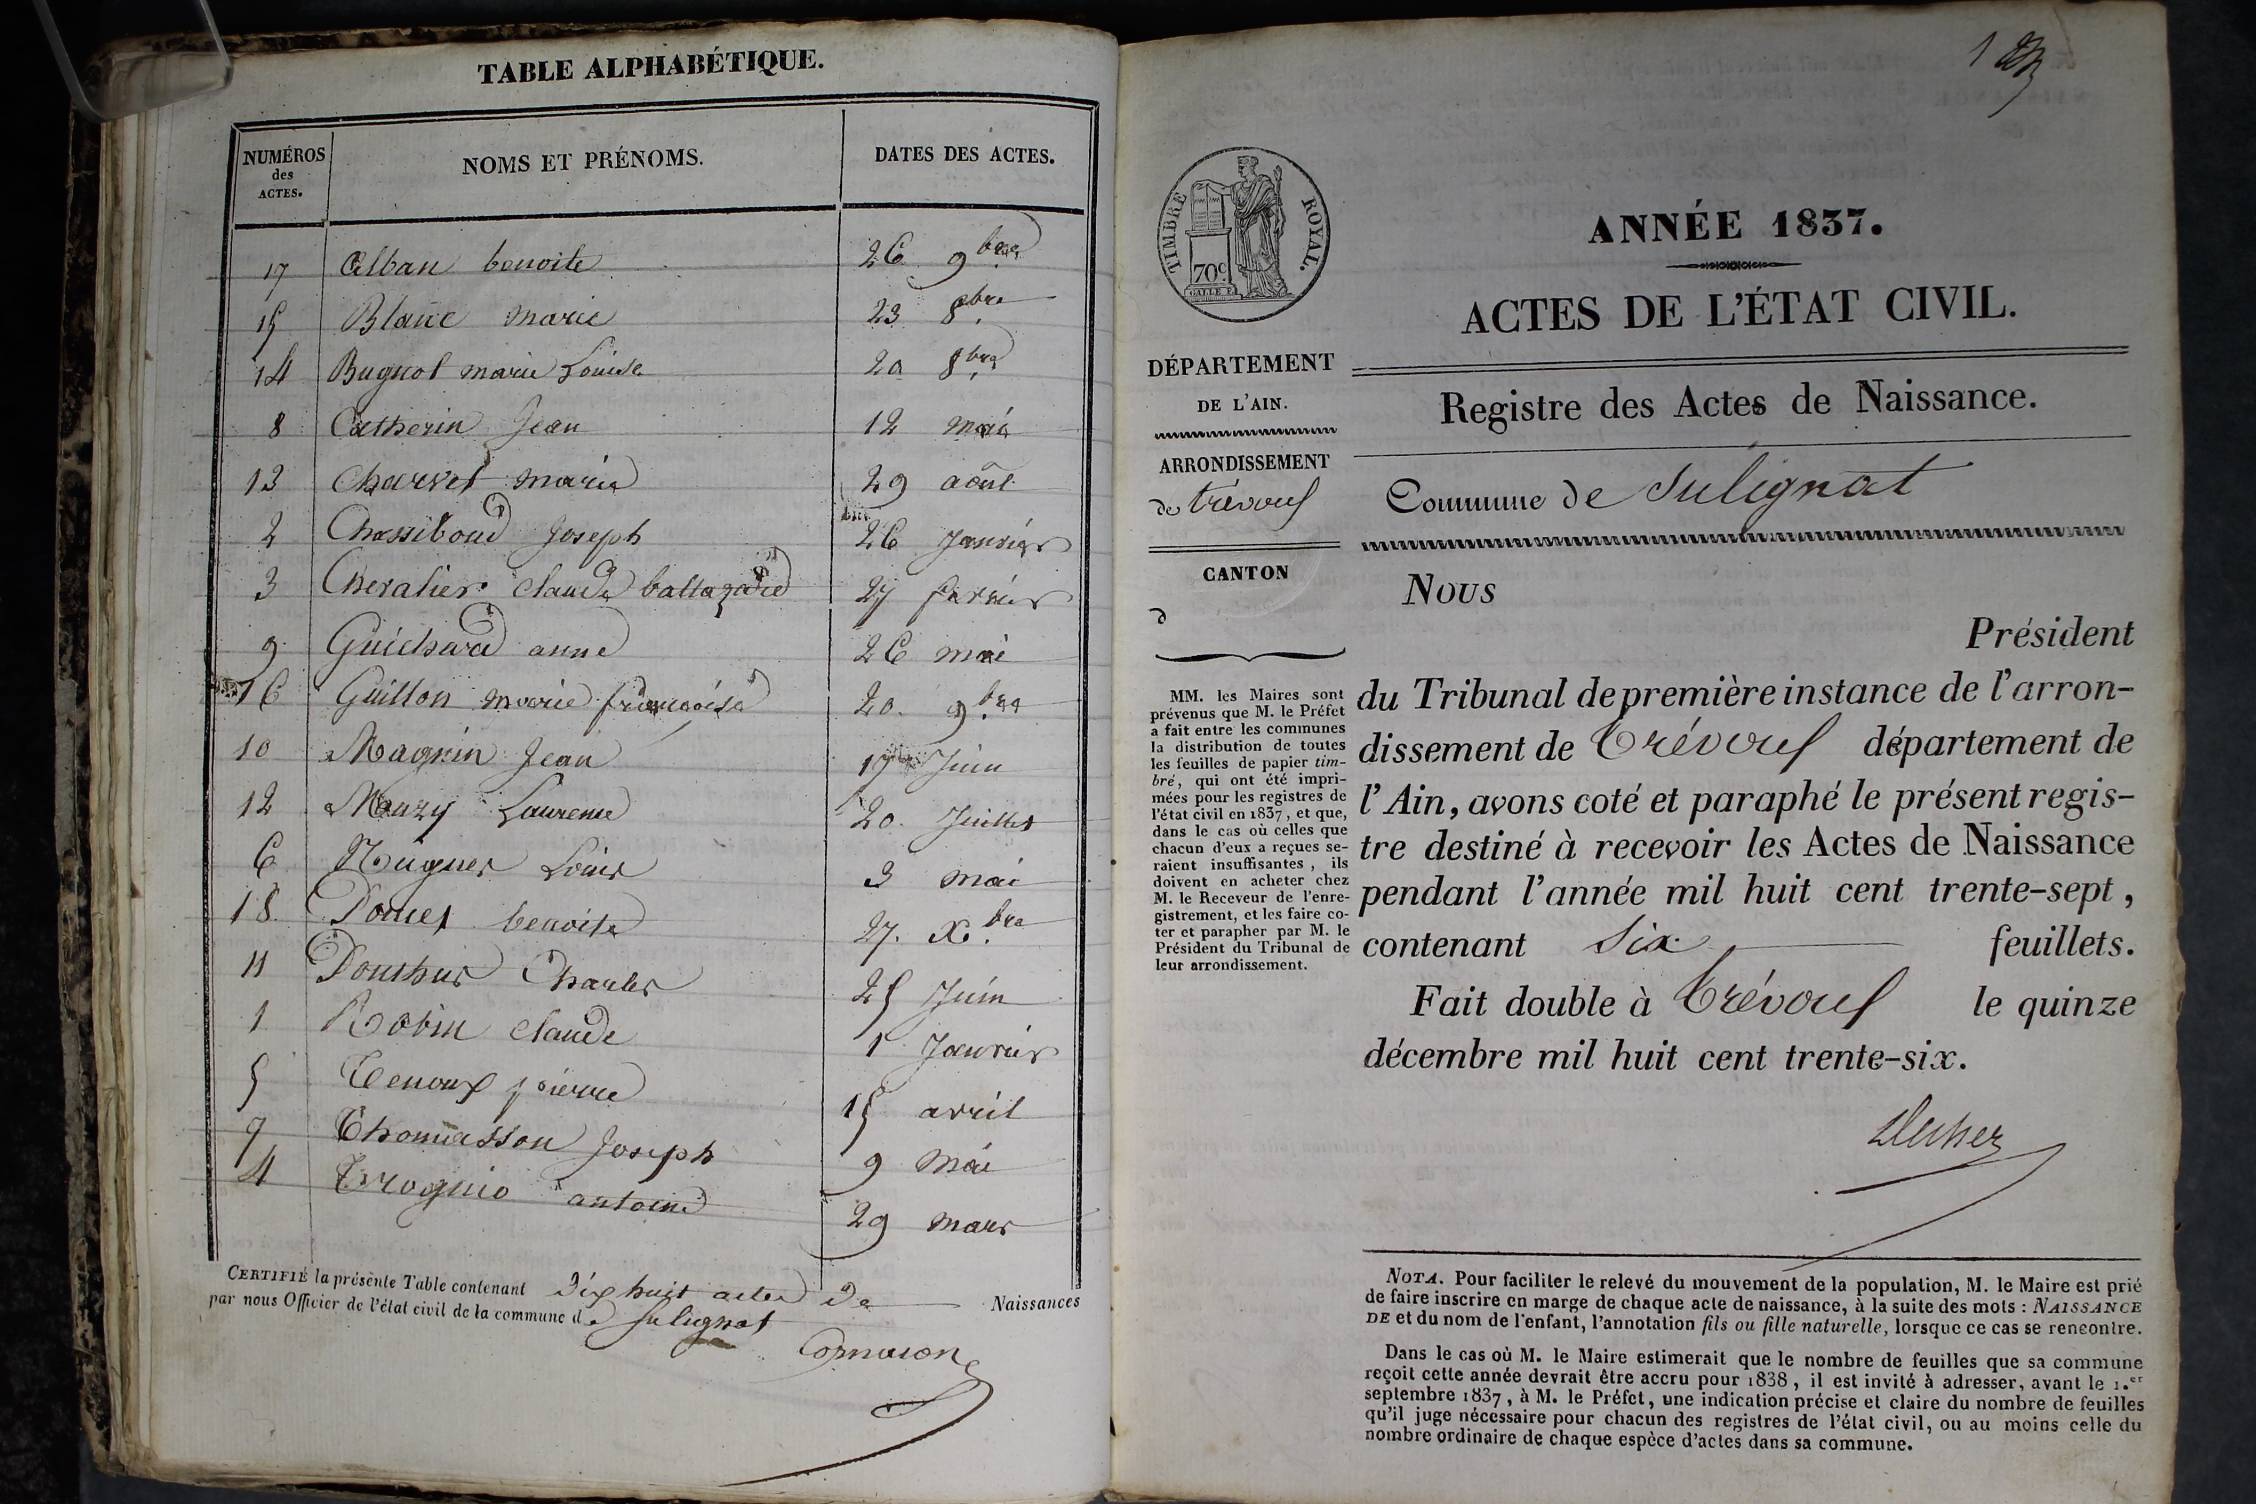 TABLE ALPHABÉTIQUE.
NUMÉROS des ACTES. NOMS ET PRÉNOMS. DATES DES ACTES.
17 Alban benoite 26 9bre
15 Blanc marie 23 8bre
14 Bugnot marie Louise 20 8bre
8 Catherin Jean 12 mai
13 Charvet marie 29 août
2 Chassiboud Joseph 26 Janvier
3 Chevalier claude baltazard 27 fevrier
9 Guichard anne 26 mai
16 Guillon marie françoise 20 9bre
10 Magnin Jean 17 Juin
12 Mazuy Laurence 20 Juillet
6 Nugues Louis 3 mai
18 Poncet benoite 27 Xbre
11 Ponthus Charles 25 Juin
1 Robin claude 1 Janvier
5 Tenoux pierre 15 avril
7 Thomasson Joseph 9 Mai
4 Trognio antoine 29 mars
CERTIFIÉ la présente Table contenant dix huit actes de Naissances
par nous Officier de l'état civil de la commune de Sulignat
Cornuson
1
TIMBRE ROYAL.
70c
GALLE F.
DÉPARTEMENT
DE L'AIN.
ARRONDISSEMENT
de trévoux
CANTON
d
MM. les Maires sont
prévenus que M. le Préfet
a fait entre les communes
la distribution de toutes
les feuilles de papier tim-
bré, qui ont été impri-
mées pour les registres de
l'état civil en 1837, et que,
dans le cas où celles que
chacun d'eux a reçues se-
raient insuffisantes, ils
doivent en acheter chez
M. le Receveur de l'enre-
gistrement, et les faire co-
ter et parapher par M. le
Président du Tribunal de
leur arrondissement.
ANNÉE 1837.
ACTES DE L'ÉTAT CIVIL.
Registre des Actes de Naissance.
Commune de Sulignat
Nous
Président
du Tribunal de première instance de l'arron-
dissement de Trévoux département de
l'Ain, avons coté et paraphé le présent regis-
tre destiné à recevoir les Actes de Naissance
pendant l'année mil huit cent trente-sept,
contenant six feuillets.
Fait double à Trévoux le quinze
décembre mil huit cent trente-six.
NOTA. Pour faciliter le relevé du mouvement de la population, M. le Maire est prié
de faire inscrire en marge de chaque acte de naissance, à la suite des mots : NAISSANCE
DE et du nom de l'enfant, l'annotation fils ou fille naturelle, lorsque ce cas se rencontre.
Dans le cas où M. le Maire estimerait que le nombre de feuilles que sa commune
reçoit cette année devrait être accru pour 1838, il est invité à adresser, avant le 1.er
septembre 1837, à M. le Préfet, une indication précise et claire du nombre de feuilles
qu'il juge nécessaire pour chacun des registres de l'état civil, ou au moins celle du
nombre ordinaire de chaque espèce d'actes dans sa commune.